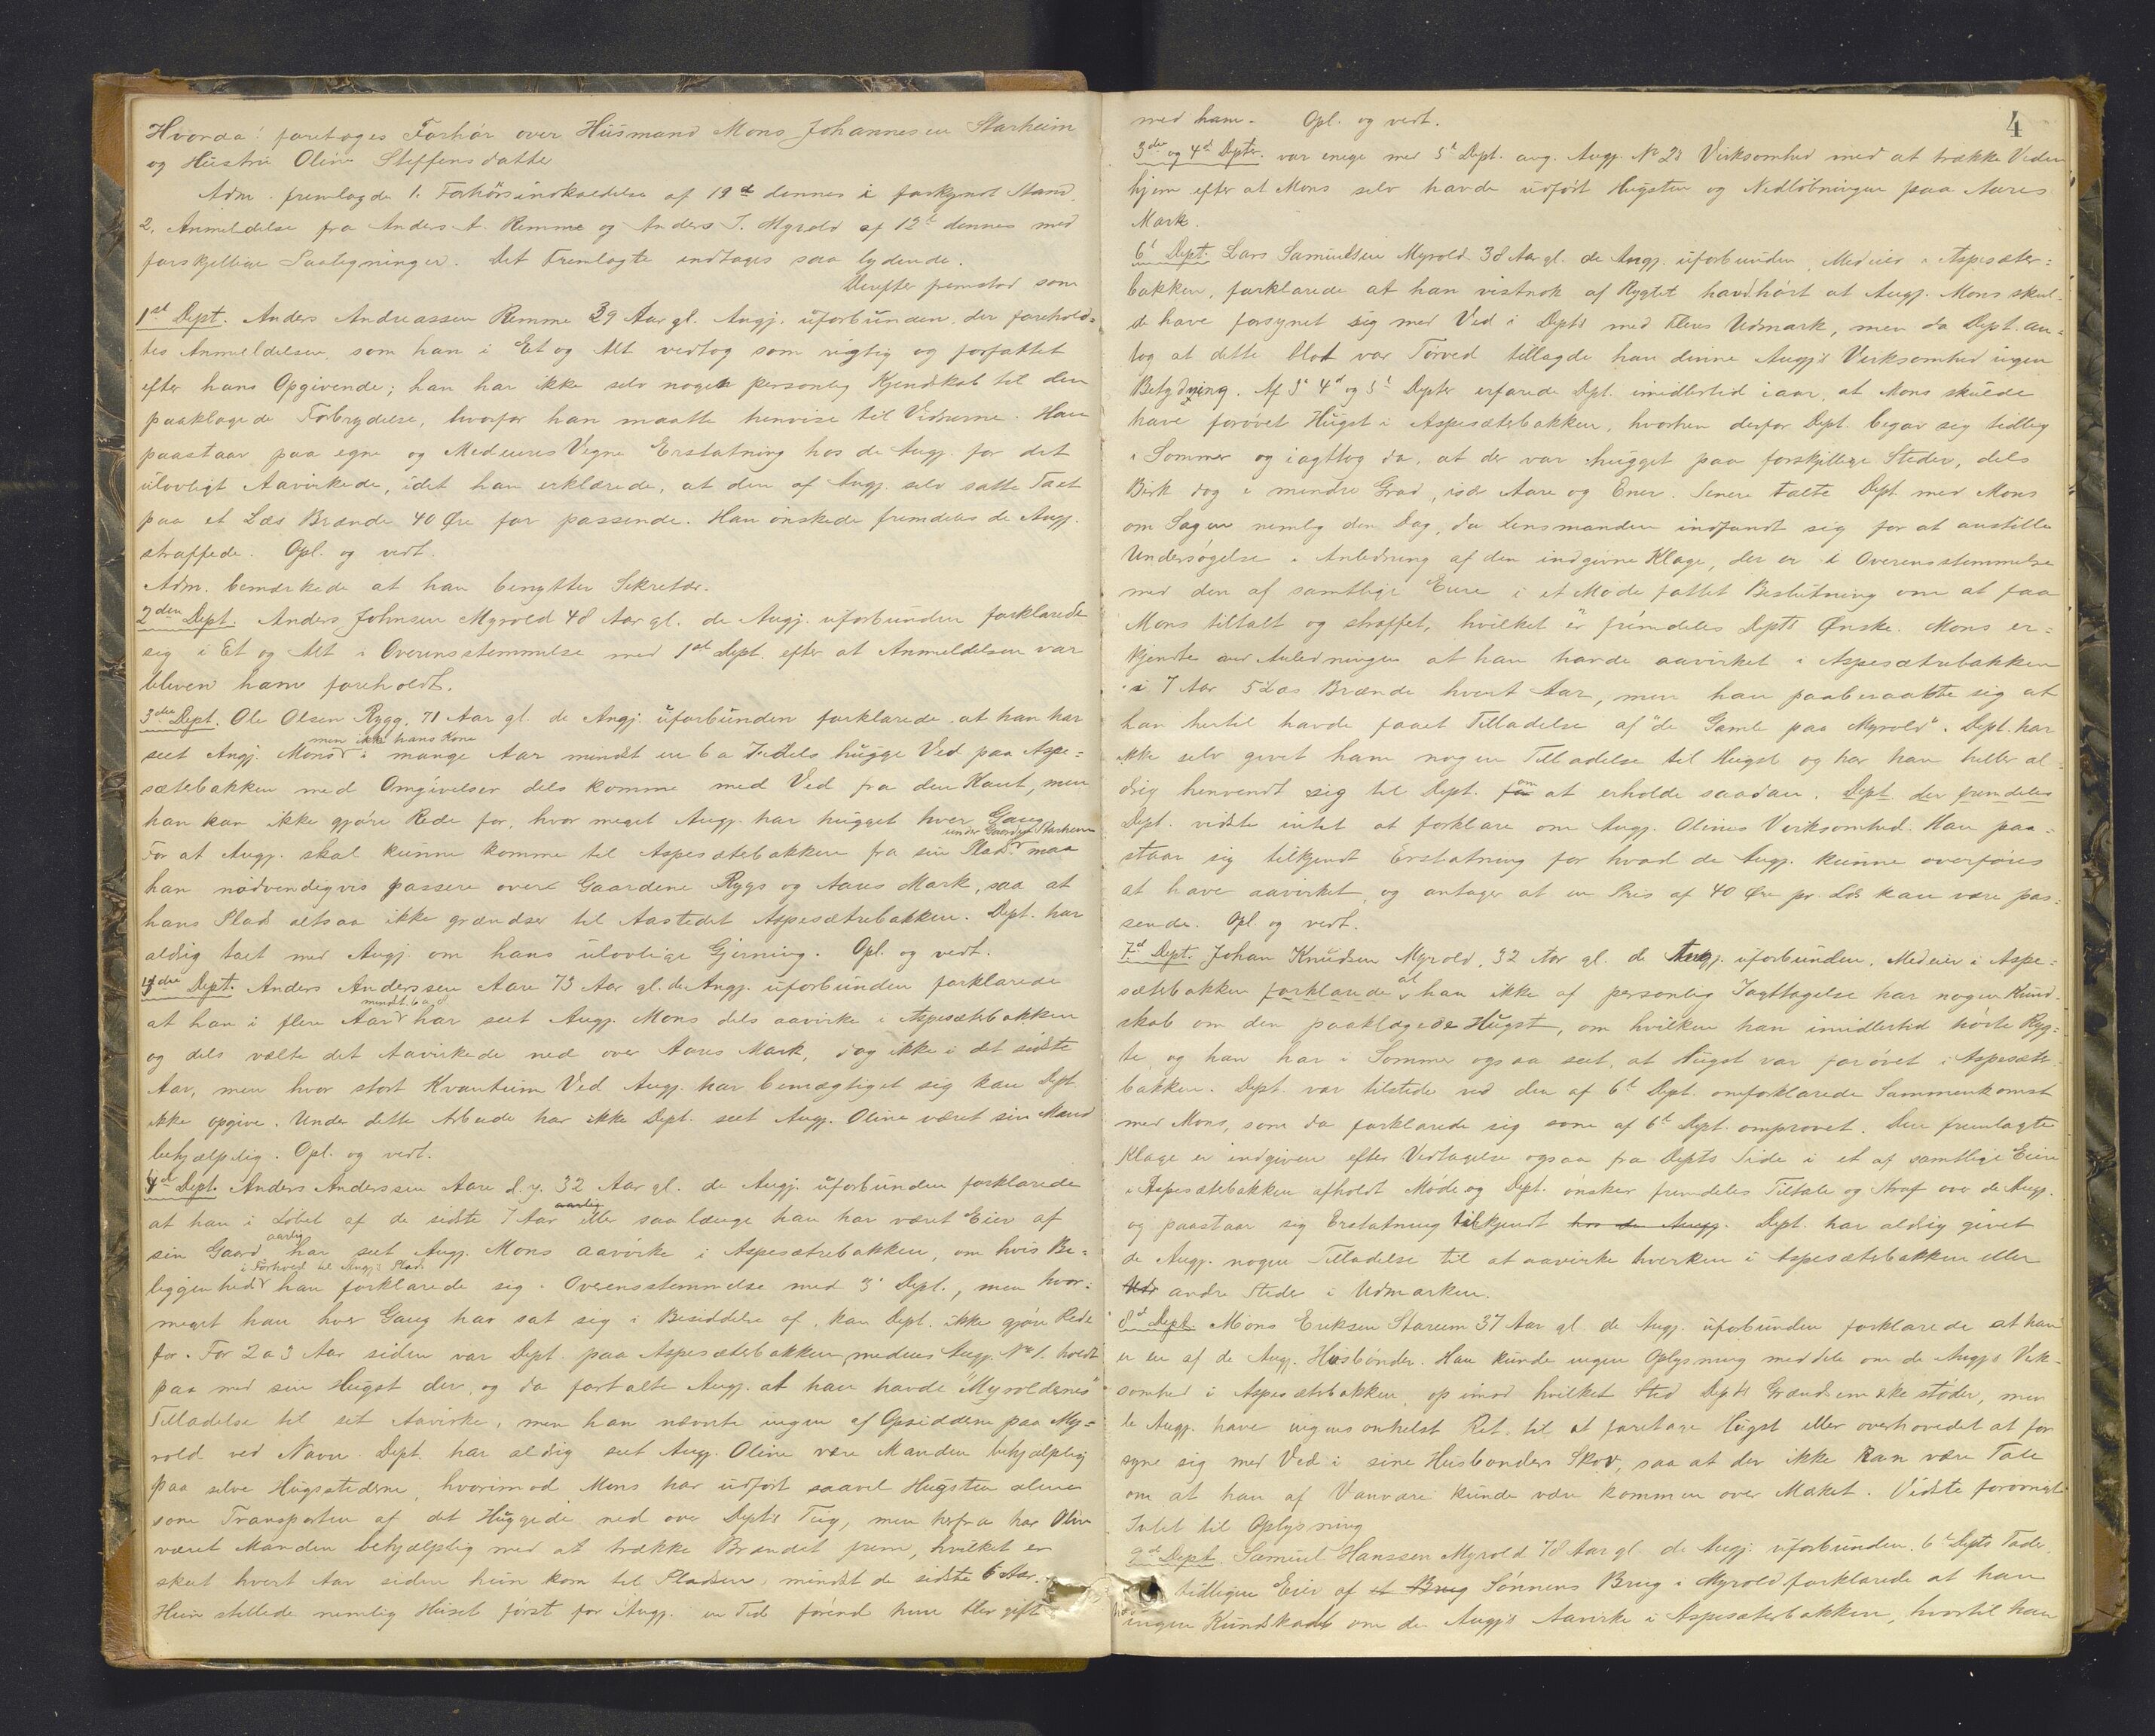 Hvorda! foretoges Forhør over Husmand Mons Johannesen Starheim
og Hustru Oline Steffensdatter
Adm. fremlagde 1. Forhørsindkaldelse af 19d dennes i forkyndt Stand.
2. Anmeldelse fra Anders A. Remme og Anders J. Myrold af 12t dennes med
forskjellige Paategninger. Det Fremlagte indtages saa lydende.
Derefter fremstod som
1st Dept. Anders Andreassen Remme 39 Aar gl. Angj. uforbunden, der forehold=
tes Anmeldelsen, som han i Et og Alt vedtog som rigtig og forfattet
efter hans Opgivende; han har ikke selv noget personlig Kjendskab til den
paaklagede Forbrydelse, hvorfor han maatte henvise til Vidnerne. Han
paastaar paa egne og Medeieres Vegne Erstatning hos de Angj. for det
ulovligt Aavirkede, idet han erklærede, at den af Angj. selv satte Taxt
paa et Læs Brænde 40 Øre for passende. Han ønskede fremdeles de Angj.
straffede. Opl. og vedt.
Adm. bemærkede at han benytter Sekretær.
2den Dept. Anders Johnsen Myrold 48 Aar gl. de Angj. uforbunden forklarede
sig i Et og Alt i Overensstemmelse med 1st Dept. efter at Anmeldelsen var
bleven ham foreholdt.
3die Dept. Ole Olsen Rygg, 71 Aar gl. de Angj. uforbunden forklarede, at han har
men ikke hans Kone
seet Angj. Mons i mange Aar mindst en 6 a 7 dels hugge Ved paa Aspe=
sæterbakken med Omgivelser dels komme med Ved fra den Kant, men
han kan ikke gjøre Rede for, hvor meget Angj. har hugget hver Gang.
under Gaarden Starheim
For at Angj. skal kunne komme til Aspesæterbakken fra sin Plads maa
han nødvendigvis passere over Gaardene Rygs og Aares Mark, saa at
hans Plads altsaa ikke grændser til Aastedet Aspesæterbakken. Dept. har
aldrig talt med Angj. om hans ulovlige Gjerning. Opl. og vedt.
4de Dept. Anders Anderssen Aare 73 Aar gl. de Angj. uforbunden forklarede
mindst 6 a 8
at han i flere Aar har seet Angj. Mons dels aavirke i Aspesæterbakken
og dels vælte det Aavirkede ned over Aares Mark, dog ikke i det sidste
Aar, men hvor stort Kvantum Ved Angj. har bemægtiget sig kan Dept.
ikke opgive. Under dette Arbeide har ikke Dept. seet Angj. Oline været sin Mand
behjælpelig. Opl. og vedt.
Dept. Anders Anderssen Aare d.y. 32 Aar gl. de Angj. uforbunden forklarede
aarlig
at han i Løbet af de sidste 7 Aar eller saa længe han har været Eier af
aarlig
sin Gaard har seet Angj. Mons aavirke i Aspesæterbakken, om hvis Be=
i Forhold til Angj's Plads
liggenhed han forklarede sig i Overensstemmelse med 3' Dept., men hvor=
meget han hver Gang har sat sig i Besiddelse af, kan Dept. ikke gjøre Rede
for. For 2 a 3 Aar siden var Dept. paa Aspesæterbakken, medens Angj. No 1. holdt
paa med sin Hugst der, og da fortalte Angj. at han havde "Myroldernes"
Tilladelse til sit Aavirke, men han nævnte ingen af Opsidderne paa My=
rold ved Navn. Dept. har aldrig seet Angj. Oline være Manden behjælpelig
paa selve Hugstederne, hvorimod Mons har udført saavel Hugsten alene
som Transporten af det Huggede ned over Dept's Teig, men herfra har Oline
været Manden behjælpelig med at trække Brændet frem, hvilket er
skeet hvert Aar siden hun kom til Pladsen, mindst de sidste 6 Aar.
Hun stellede nemlig Huset først for Angj. en Tid førend hun blev gift
4
med ham. Opl. og vedt.
3die og 4d Depter. var enige med 5t Dept. ang. Angj. No 2s Virksomhed med at trække Veden
hjem efter at Mons selv havde udført Hugsten og Nedløbningen paa Aares
Mark.
6t Dept. Lars Samuelsen Myrold 38 Aar gl. de Angj. uforbunden, Medeier i Aspesæter=
bakken, forklarede at han vistnok af Rygtet havd hørt at Angj. Mons skul=
de have forsynet sig med Ved i Dept's med Fleres Udmark, men da Dept. an=
tog at dette blot var Tørved tillagde han denne Angj's Virksomhed ingen
Betydning. Af 3' 4d og 5t Depter erfarede Dept. imidlertid iaar, at Mons skulde
have forøvet Hugst i Aspesæterbakken, hvorhen derfor Dept. begav sig tidlig
i Sommer og iagttog da, at der var hugget paa forskjellige Steder, dels
Birk dog i mindre Grad, især Aare og Ener. Senere talte Dept. med Mons
om Sagen nemlig den Dag, da Lensmanden indfandt sig for at anstille
Undersøgelse i Anledning af den indgivne Klage, der er i Overensstemmelse
med den af samtlige Eiere i et Møde fattet Beslutning om at faa
Mons tiltalt og straffet, hvilket er fremdeles Depts Ønske. Mons er=
kjendte ved Anledningen at han havde aavirket i Aspesæterbakken
i 7 Aar 5 Læs Brænde hvert Aar, men han paaberaabte sig at
han hertil havde faaet Tilladelse af "de Gamle paa Myrold". Dept. har
ikke selv givet ham nogen Tilladelse til Hugst og har han heller al=
drig henvendt sig til Dept. om at erholde saadan. Dept. der fremdeles
Dept. vidste intet at forklare om Angj. Olines Virksomhed. Han paa=
staar sig tilkjendt Erstatning for hvad de Angj. kunne overføres
at have aavirket, og antager at en Pris af 40 Øre pr. Læs kan være pas=
sende. Opl. og vedt.
7d Dept. Johan Knudsen Myrold, 32 Aar gl. de Angj. uforbunden. Medeier i Aspe=
sæterbakken forklarede at han ikke af personlig Iagttagelse har nogen Kund=
skab om den paaklagede Hugst, om hvilken han imidlertid hørte Ryg=
te, og han har i Sommer ogsaa seet, at Hugst var forøvet i Aspesæter=
bakken. Dept. var tilstede ved den af 6t Dept. omforklarede Sammenkomst
med Mons, som da forklarede sig som af 6t Dept. omprovet. Den fremlagte
Klage er indgiven efter Vedtagelse ogsaa fra Depts Side i et af samtlige Eiere
i Aspesæterbakken afholdt Møde og Dept. ønsker fremdeles Tiltale og Straf over de Angj.
og paastaar sig Erstatning tilkjendt hos de Angj. Dept. har aldrig givet
de Angj. nogen Tilladelse til at aavirke hverken i Aspesæterbakken eller
Ud andre Steder i Udmarken.
8d Dept. Mons Eriksen Stareim 37 Aar gl. de Angj. uforbunden forklarede at han
er en af de Angj. Husbønder. Han kunde ingen Oplysning meddele om de Angj's Virk=
somhed i Aspesæterbakken, op imod hvilket Sted Depts Grændser ikke støder, men
de Angj. have ingensomhelst Ret til at foretage Hugst eller overhovedet at for
syne sig med Ved i sine Husbonders Skov, saa at der ikke kan være Tale
om at han af Vanvare kunde være kommen over Mærket. Vidste forøvrigt
Intet til Oplysning
9d Dept. Samuel Hanssen Myrold 78 Aar gl. de Angj. uforbunden. 6t Depts Fader
tidligere Eier af et Brug Sønnens Brug i Myrold forklarede at han
ingen Kundskab om de Angj's Aavirke i Aspesæterbakken, hvortil han